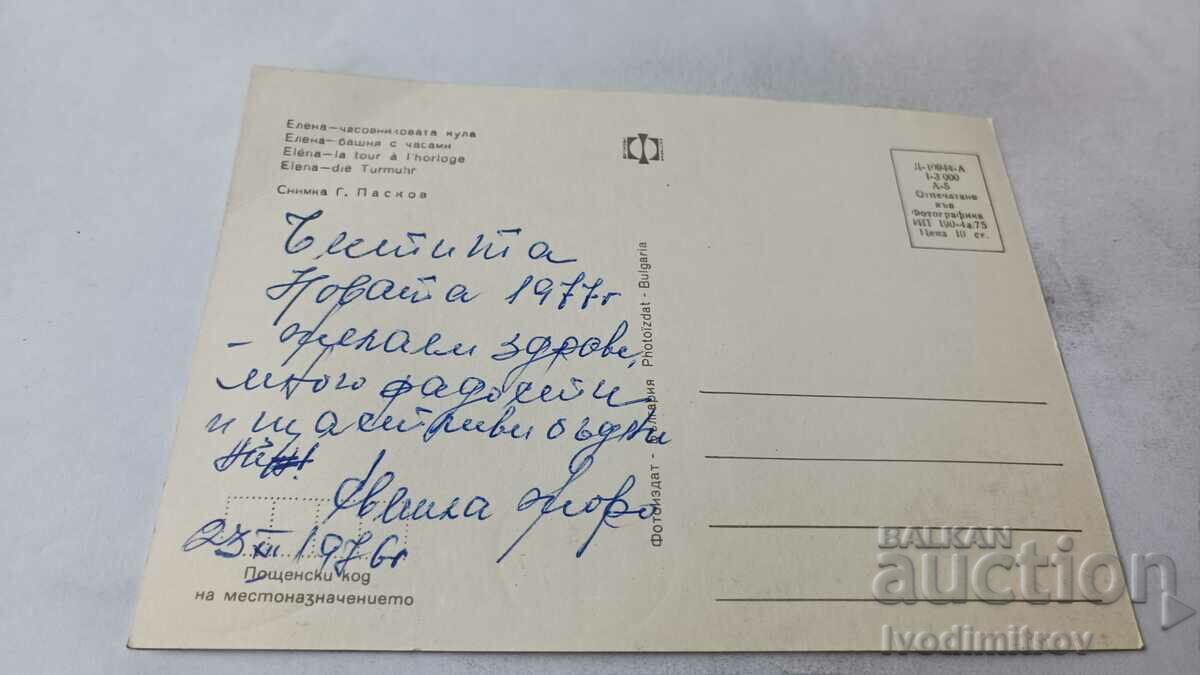 Елена—часовниковата кула
Елена—башня с часами
Eléna—la tour à l'horloge
Elena—die Turmuhr
Снимка Г. Пасков
Д-10944-А
I-3 000
А-5
Отпечатано
във
Фотографика
ИП 190-4а/75
Цена 10 ст.
Честита
Новата 1977 г
– желаем здраве,
много радости
и щастливи бъдни
1976 г
Пощенски код
на местоназначението
Фотоиздат - България Photoizdat - Bulgaria
BALKAN
auction
Ivodimitrov